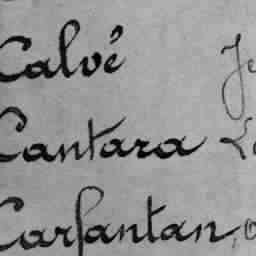 Calvé
Cantara
Carfantan,